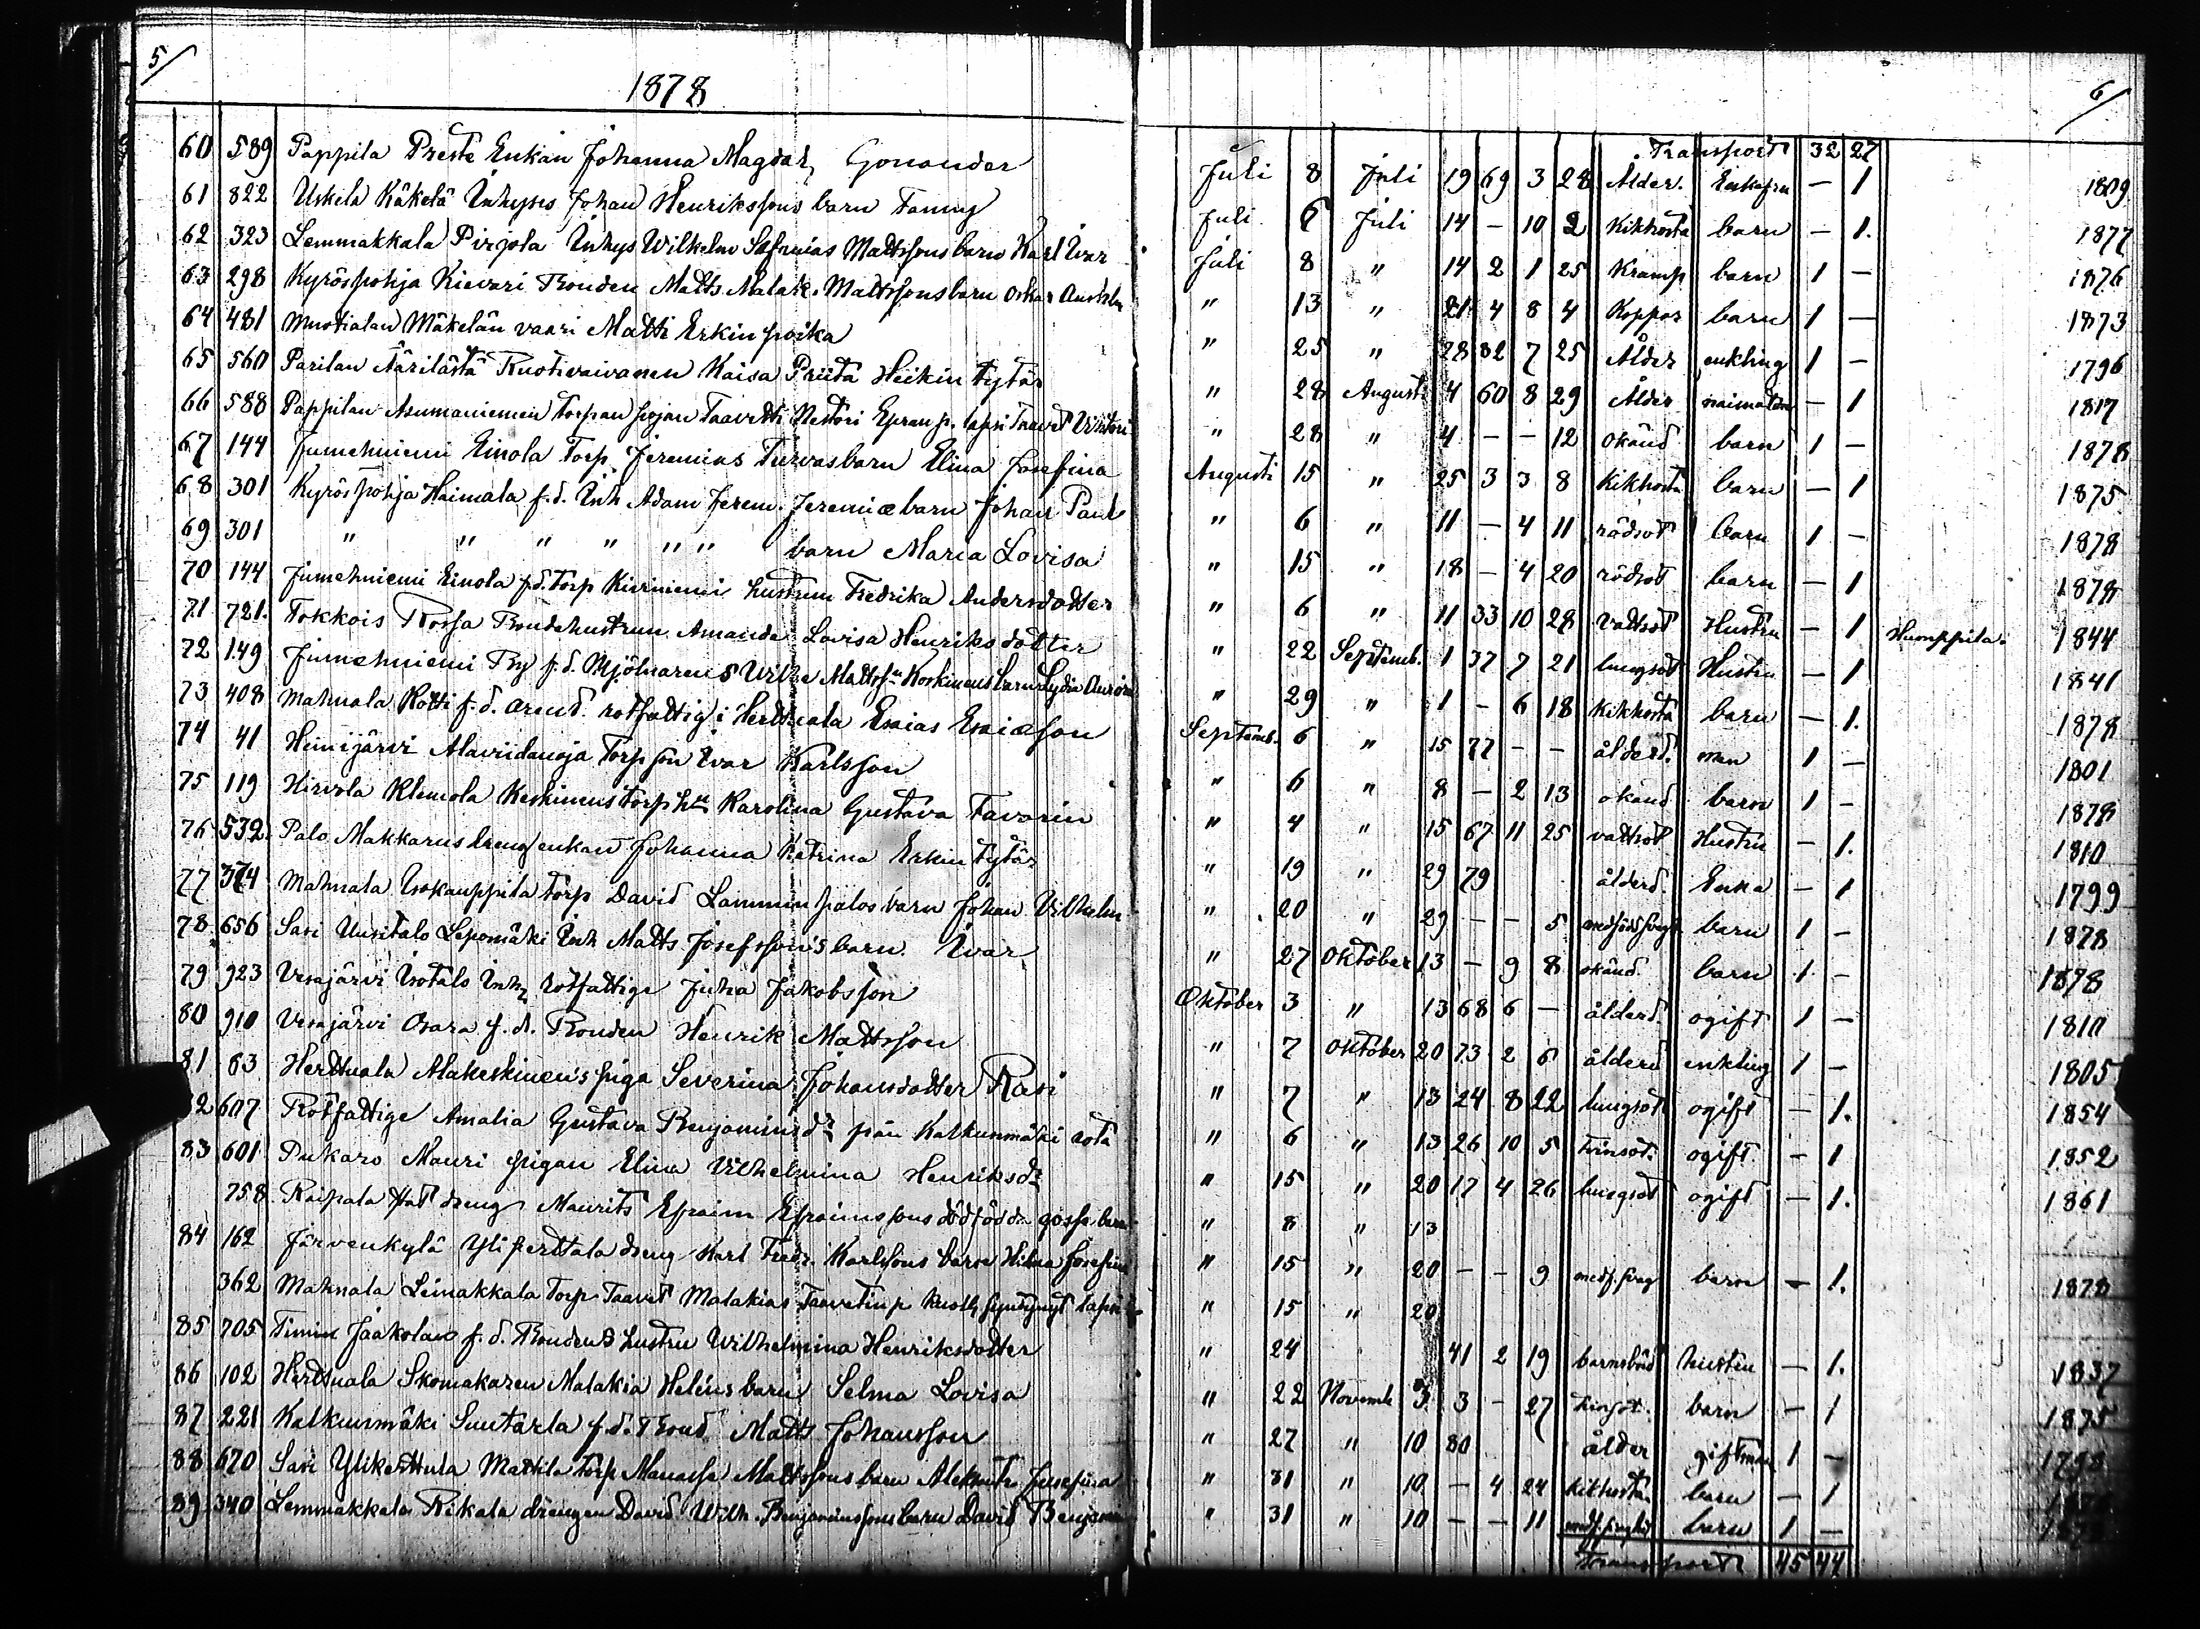 5/
1878
60 589 Pappila Preste Enkan Johanna Magdal, Gonander
61 822 Uskela Käkelä Inhyses Johan Henrikssons barn Fanny
62 323 Lemmakkala Pirjola Inhys Wilhelm Safanias Mattssons barn Karl Ivar
63 298 Kyröspohja Kievari Bonden Matts Malak. Mattssons barn Oskar
64 481 Muotialan Mäkelän vaari Matti Erkin poika
65 560 Parilan Äärilästä Ruotivaivanen Kaisa Priita Heikin tytär
66 588 Pappilan Asumaniemen Torpan pojan Taavetti Nestori Epran p. lapsi Taavet Viktori
67 144 Jumehniemi Einola Torp. Jeremias Turvas barn Elina Josefina
68 301 Kyröspohja Haimala f.d. Inh Adam Jerem. Jeremiæ barn Johan Paul
69 301 " " " " " " barn Maria Lovisa
70 144 Jumehniemi Einola f.d. Torp Kiviniemi hustrun Fredrika Andersdotter
71 721. Tokkois Rossa Bondehustrun Amanda Lovisa Henriksdotter
72 149 Jumehniemi By f.d. Mjölnarens Wilhe Mattsn Koskinens barn Lydia Aurora
73 408 Mahnala Kotti f.d. arend. rotfattig i Herttuala Esaias Esaiæson
74 41 Heinijärvi Alaviidanoja Torp son Ivar Karlsson
75 119 Hirvola Klemola Keskinens Torp hu Karolina Gustava Favorin
76 532 Palo Makkarus dreng enkan Johanna Katrina Erkin tytär
77 374 Mahnala Isokauppila Torp David Lamminpalos barn Johan Vilhelm
78. 656 Sasi Uusitalo Leponmäki Inh Matts Josefsson's barn Ivar
79 923 Vesajärvi Isotalo Inh, Rotfattige Juha Jakobsson
80 910 Vesajärvi Osara f.d. Bonden Henrik Mattsson
81 63 Herttuala Alakeskinen's piga Severina Johansdotter Rasi
82 607 Rotfattige Amalia Gustava Benjaminsdr från Kalkunmäki rota
83 601 Pukaro Mauri pigan Elina Vilhelmina Henriksdr
758 Raipala dreng Maurits Efraim Efraimssons dödfödda gosse barn
84 162 Järvenkylä Yliperttala dreng Karl Fredr. Karlssons barn Hilma Josefina
362 Mahnala Leinakkala Torp Taavet Malakias Taavetin p. lapsi
85 705 Timin Jaakolan f.d. Bondens hustru Wilhelmina Henriksdotter
86 102 Herttuala Skomakaren Malakia Heléns barn Selma Lovisa
87 221 Kalkunmäki Suutarla f.d. Bond. Matts Johansson
88 670 Sasi Ylikerttula Mattila Torp Manasse Mattssons barn Josefina
89 340 Lemmakkala Rikala drengen David Wilh. Benjaminssons barn David Benjamin
6/
Transport 32 27
Juli 8 Juli 19 69 3 28 Ålder. Enkefru — 1 1809
Juli 6 Juli 14 — 10 2 Kikhosta barn — 1. 1877
Juli 8 " 14 2 1 25 Kramp barn 1 — 1876
" 13 " 21 4 8 4 Koppor barn 1 — 1873
" 25 " 28 82 7 25 Ålder enkling 1 — 1796
" 28 Augusti 4 60 8 29 Ålder naimaton — 1 1817
" 28 " 4 — — 12 okänd barn 1 — 1878
Augusti 15 " 25 3 3 8 Kikhosta barn — 1 1875
" 6 " 11 — 4 11 rödsot barn 1 — 1878
" 15 " 18 — 4 20 rödsot barn — 1 1878
" 6 " 11 33 10 28 Vattsot Hustru — 1 Humppila. 1844
" 22 Septemb. 1 37 7 21 lungsot Hustru — 1 1841
" 29 " 1 — 6 18 Kikhosta barn — 1. 1878
Septemb. 6 " 15 77 — — ålderd. man 1 — 1801
" 6 " 8 — 2 13 okänd barn 1 — 1878
" 4 " 15 67 11 25 vattsot Hustru — 1. 1810
" 19 " 29 79 ålderd Enka — 1 1799
" 20 " 29 — — 5 barn 1 — 1878
" 27 Oktober 13 — 9 8 okänd. barn 1 — 1878
Oktober 3 " 13 68 6 — ålderd. ogift 1 — 1810
" 7 Oktober 20 73 2 6 ålderd enkling 1 — 1805
" 7 " 13 24 8 22 lungsot ogift — 1. 1854
" 6 " 13 26 10 5 tvinsot. ogift. — 1 1852
" 15 " 20 17 4 26 lungsot ogift — 1. 1861
" 8 " 13
" 15 " 20 — — 9 medf. svag barn — 1. 1878
" 15 " 20
" 24 41 2 19 barnsbörd hustru — 1. 1837
" 22 Novemb 3 3 — 27 barn — 1 1875
" 27 " 10 80 ålder gift man 1 —
" 31 " 10 — 4 24 Kikhosta. barn — 1
" 31 " 10 — — 11 barn 1 —
Transport 45 44